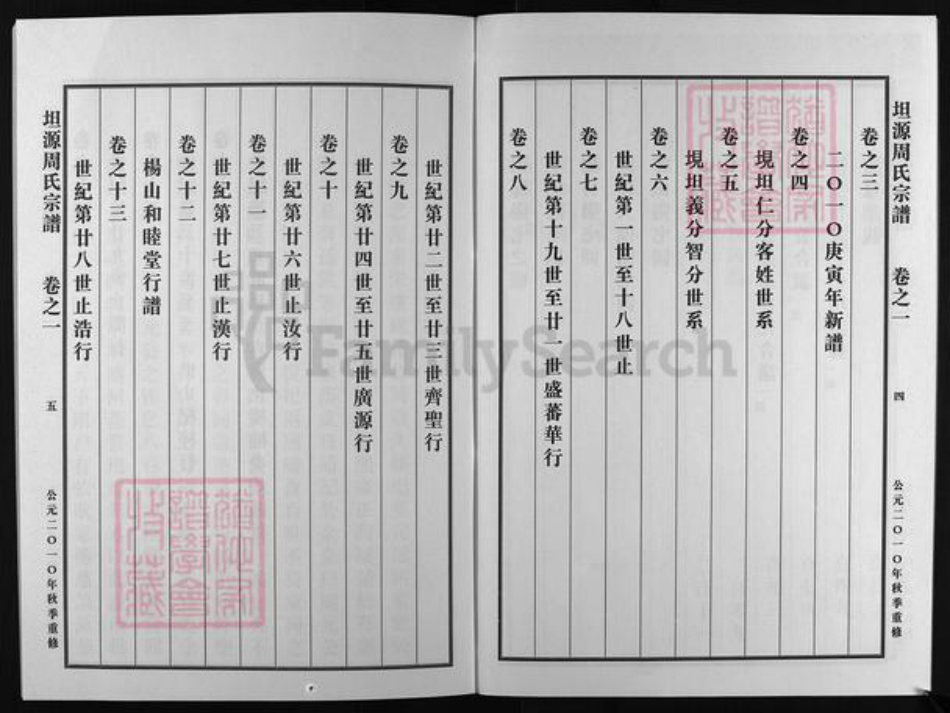 坦源周氏宗譜 卷之一 四 公元二〇一〇年秋季重修
卷之三
二〇一〇庚寅年新譜
卷之四
垷坦仁分客姓世系
卷之五
垷坦義分智分世系
卷之六
世紀第一世至十八世止
卷之七
世紀第十九世至廿一世盛蕃華行
卷之八
世紀第廿二世至廿三世齊聖行
卷之九
世紀第廿四世至廿五世廣源行
卷之十
世紀第廿六世止汝行
卷之十一
世紀第廿七世止漢行
卷之十二
楊山和睦堂行譜
卷之十三
世紀第廿八世止浩行
坦源周氏宗譜 卷之一 五 公元二〇一〇年秋季重修
FamilySearch